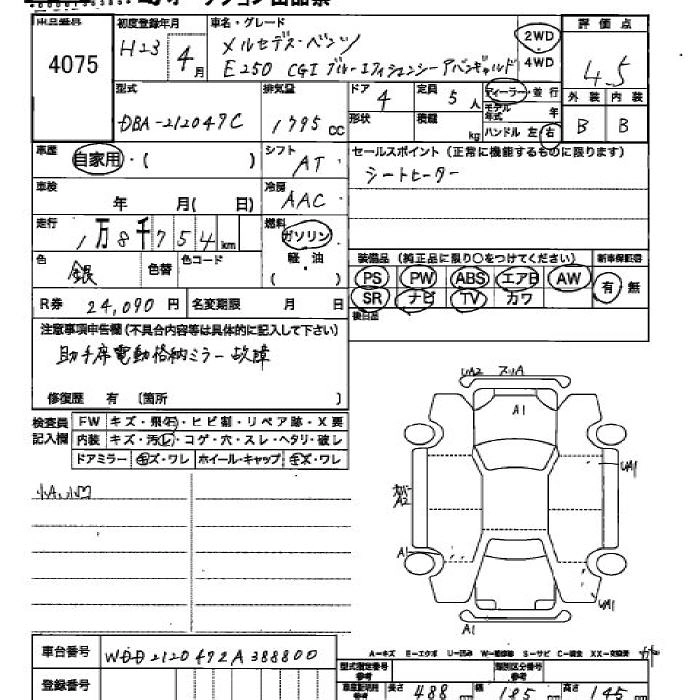 初度登録年月 車名・グレード 評価点
4075 H23 4月 メルセデス・ベンツ 2WD 4.5
E250 CGI ブルーエフィシェンシーアバンギャルド 4WD
型式 排気量 ドア 定員 ディーラー・並行 外装 内装
DBA-212047C 1795cc 4 5人 モデル年式 年 B B
形状 積載 kg ハンドル 左・右
車歴 自家用・( ) シフト AT セールスポイント(正常に機能するものに限ります)
車検 年 月( 日) 冷房 AAC シートヒーター
走行 1万8千754km 燃料 ガソリン
色 銀 色替 色コード 軽・油 ( ) 装備品(純正品に限り○をつけてください) 新車保証書
PS PW ABS エアB AW 有・無
R券 24,090円 名変期限 月 日 SR ナビ TV カワ
後日品
注意事項申告欄(不具合内容等は具体的に記入して下さい)
助手席電動格納ミラー故障
修復歴 有 〔箇所 〕
検査員記入欄 FW キズ・飛石・ヒビ割・リペア跡・X要
内装 キズ・汚レ・コゲ・穴・スレ・ヘタリ・破レ
ドアミラー キズ・ワレ ホイール・キャップ キズ・ワレ
小A、小凹
UA2 スリA
A1
UA1
A2
A1
UA1
A1
A-キズ E-エクボ U-凹み W-補修跡 S-サビ C-腐食 XX-交換済
車台番号 WDD2120472A388800
型式指定番号 参考 類別区分番号 参考
登録番号 車庫証明用 参考 長さ 488cm 幅 185cm 高さ 145cm